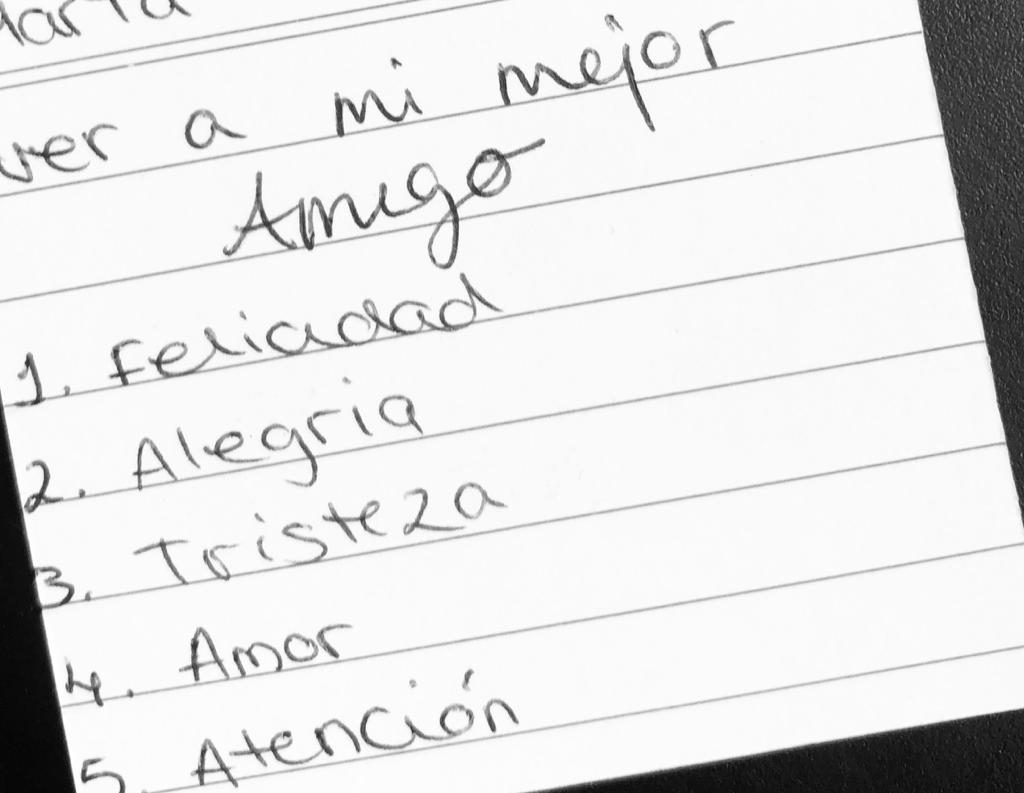 ver a mi mejor
Amigo
1. Feliciadad
2. Alegria
3. Tristeza
4. Amor
5. Atención